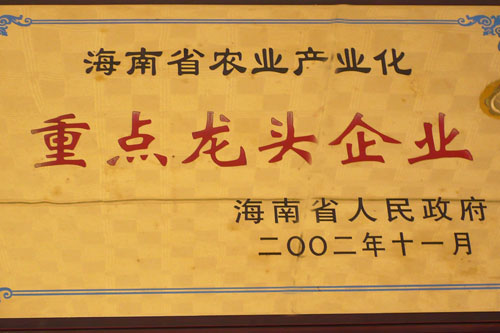 海南省农业产业化
重点龙头企业
海南省人民政府
二〇〇二年十一月